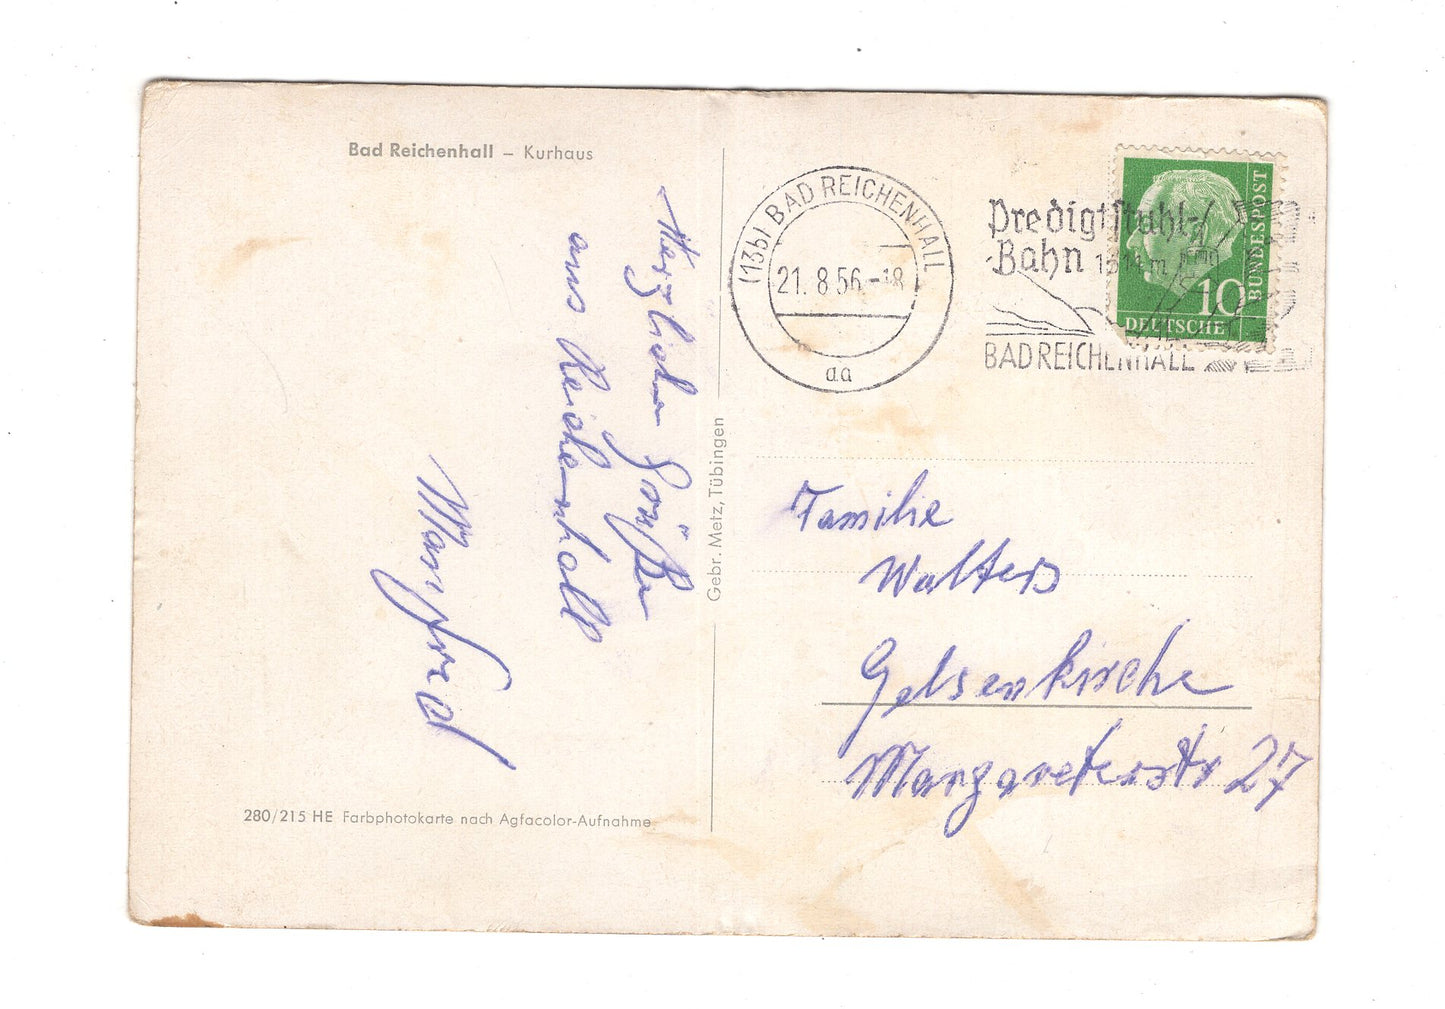 Bad Reichenhall – Kurhaus
Herzliche Grüße
aus Reichenhall
Manfred
280/215 HE Farbphotokarte nach Agfacolor-Aufnahme
Gebr. Metz, Tübingen
(13b) BAD REICHENHALL
21. 8.56.-18
aa
Predigtstuhl-
Bahn 1614 m
BAD REICHENHALL
BUNDESPOST
10
DEUTSCHE
Familie
Walters
Gelsenkirche
Margaretenstr 27